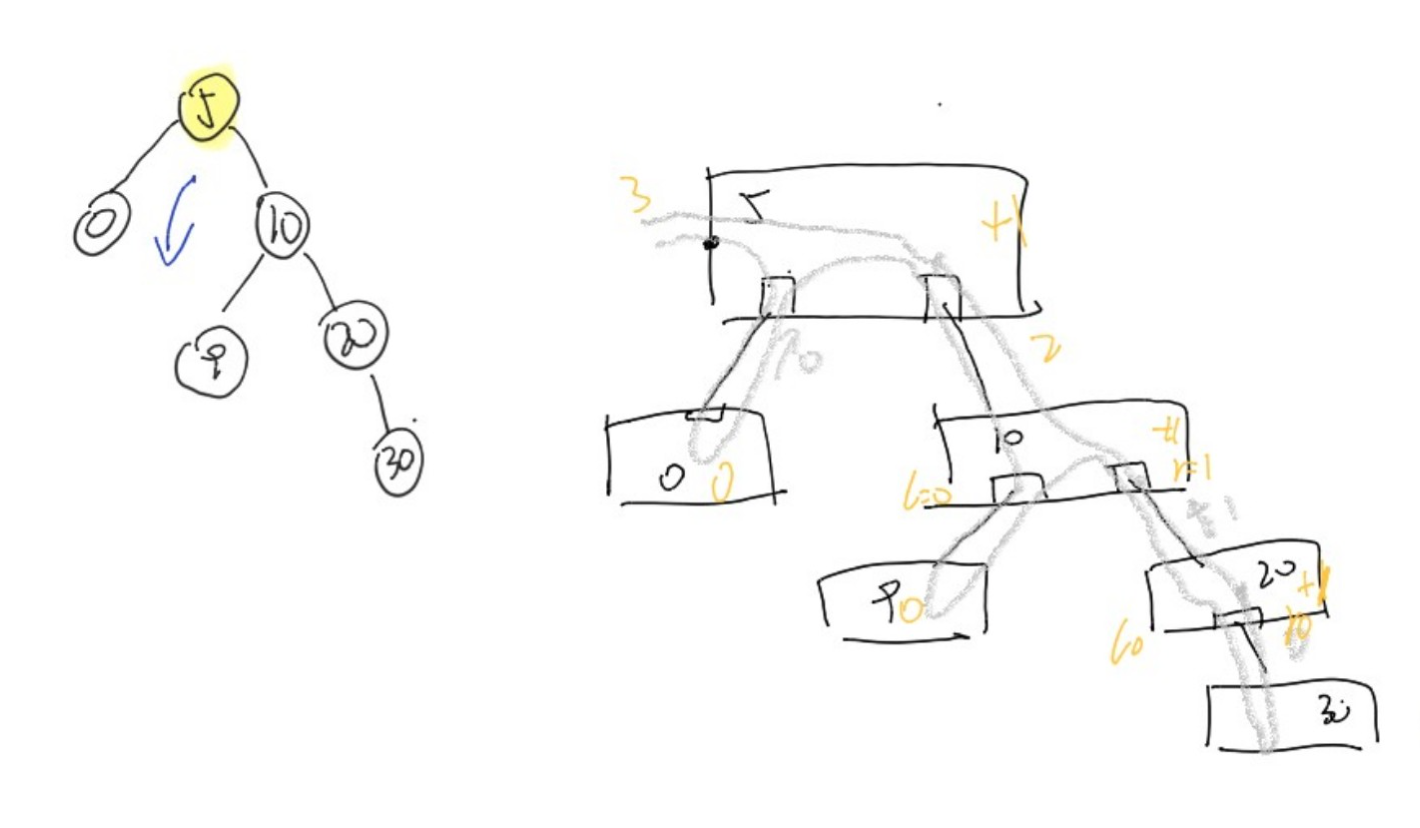 5
0
10
9
20
30
3
5
+1
0
2
0
0
10
+1
l=0
r=1
+1
9
0
20
+1
l0
r0
30